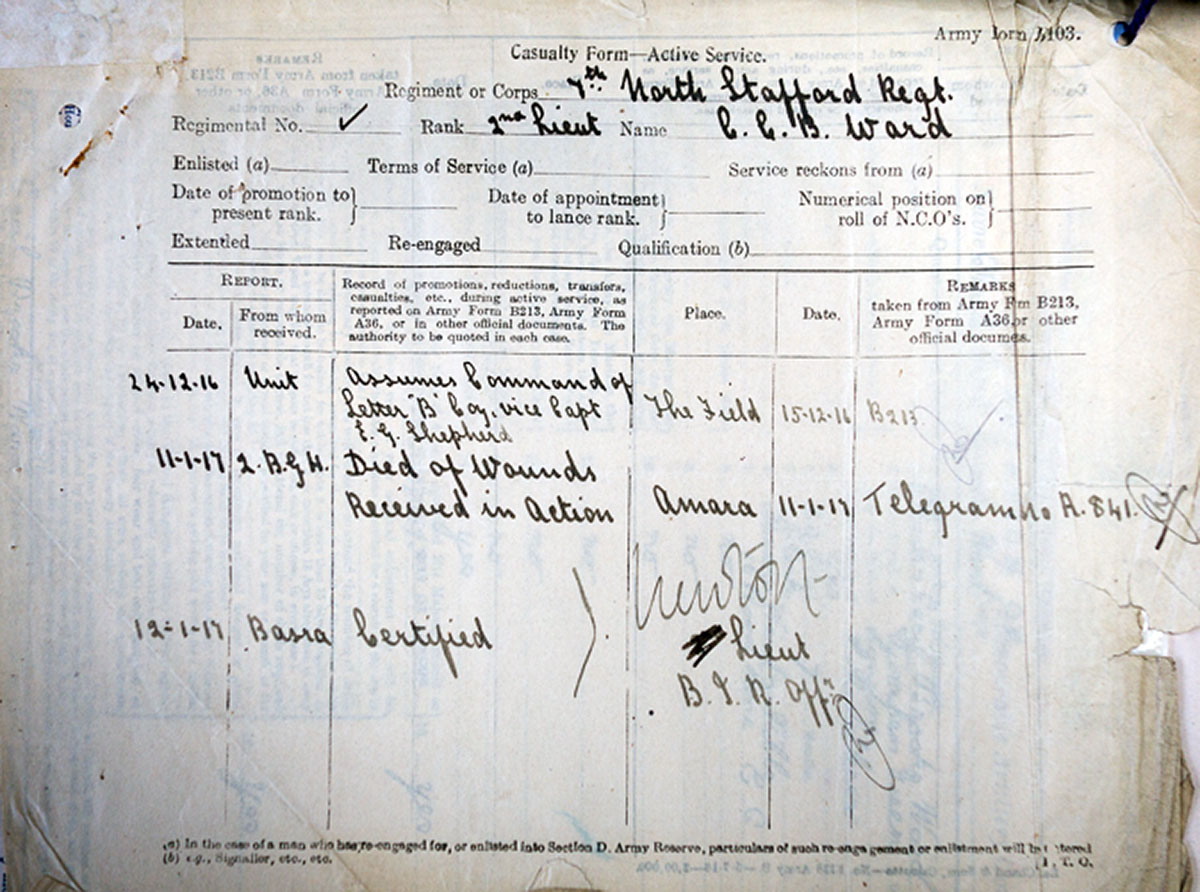 Army Form 103.
Casualty Form—Active Service.
Regiment or Corps 7th North Stafford Regt.
Regimental No. ✓ Rank 2nd Lieut Name C. C. B. Ward
Enlisted (a) Terms of Service (a) Service reckons from (a)
Date of promotion to present rank. } Date of appointment to lance rank. } Numerical position on roll of N.C.O's. }
Extended Re-engaged Qualification (b)
REPORT.
Date.
From whom received.
Record of promotions, reductions, transfers,
casualties, etc., during active service, as
reported on Army Form B213, Army Form
A36, or in other official documents. The
authority to be quoted in each case.
Place.
Date.
REMARKS
taken from Army Frm B213,
Army Form A36, or other
official documes.
24-12-16 Unit Assumes Command of
Letter "B" Coy, vice Capt The Field 15-12-16 B213
E. G. Shepherd
11-1-17 2.B.G.H. Died of Wounds
Received in Action Amara 11-1-17 Telegram no R.841.
12-1-17 Basra Certified
Lieut
B. I. R. Offr
(a) In the case of a man who has re-engaged for, or enlisted into Section D. Army Reserve, particulars of such re-engagement or enlistment will be entered
(b) e.g., Signaller, etc., etc. P. T. O.